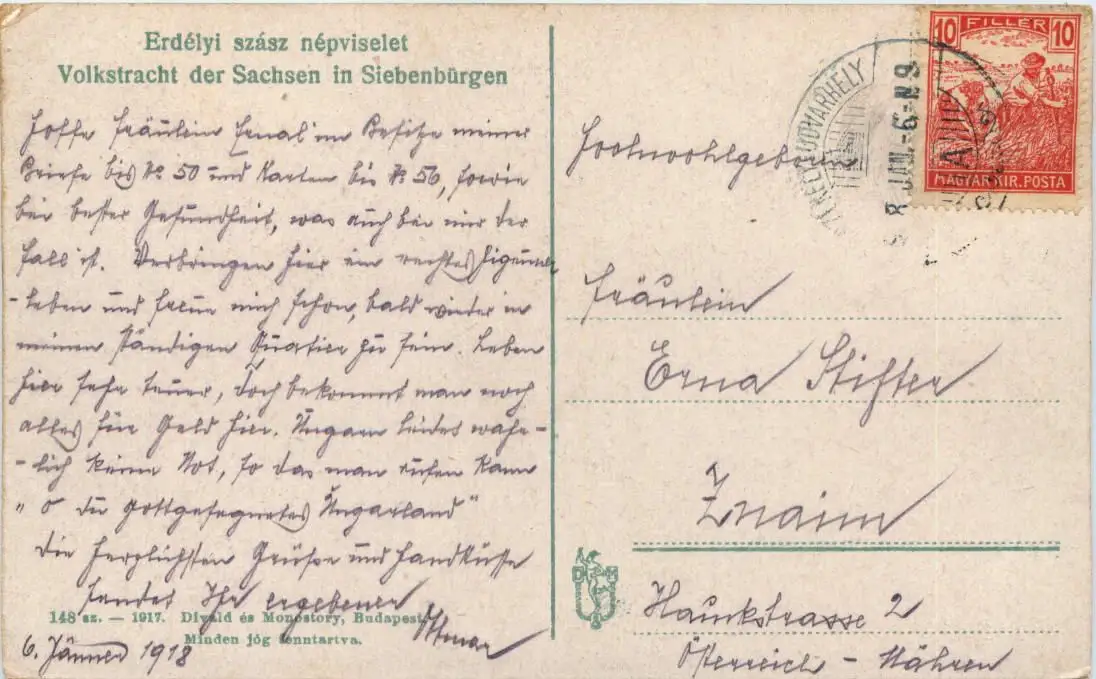 Erdélyi szász népviselet
Volkstracht der Sachsen in Siebenbürgen
Hoffe Fräulein Erna! im Besitze meiner
Briefe bis № 50 und Karten bis № 56, sowie
bei bester Gesundheit, was auch bei mir der
Fall ist. Verbringen hier ein rechtes Zigeuner
-leben und freue mich schon, bald wieder in
meinem ständigen Quartier zu sein. Leben
hier sehr teuer, doch bekommt man noch
alles für Geld hier. Ungarn leidet wahr-
-lich keine Not, so das man rufen kann
„ O du gottgesegnetes Ungarland"
Die herzlichsten Grüße und Handküsse
sendet Ihr ergebener
Ottmar
6. Jänner 1918
148 sz. — 1917. Divald és Monostory, Budapest.
Minden jóg fenntartva.
10 FILLÉR 10
MAGYAR KIR. POSTA
SZÉKELYUDVARHELY
JAN.
Hochwohlgeboren
Fräulein
Erna Stifter
Znaim
Haunkstrasse 2
Österreich - Mähren
D M